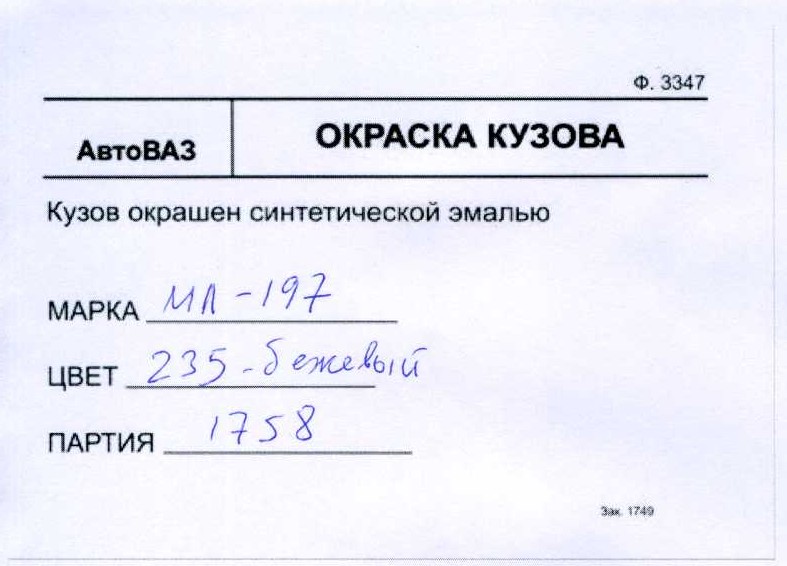 Ф. 3347
АвтоВАЗ ОКРАСКА КУЗОВА
Кузов окрашен синтетической эмалью
МАРКА МЛ-197
ЦВЕТ 235-бежевый
ПАРТИЯ 1758
Зак. 1749